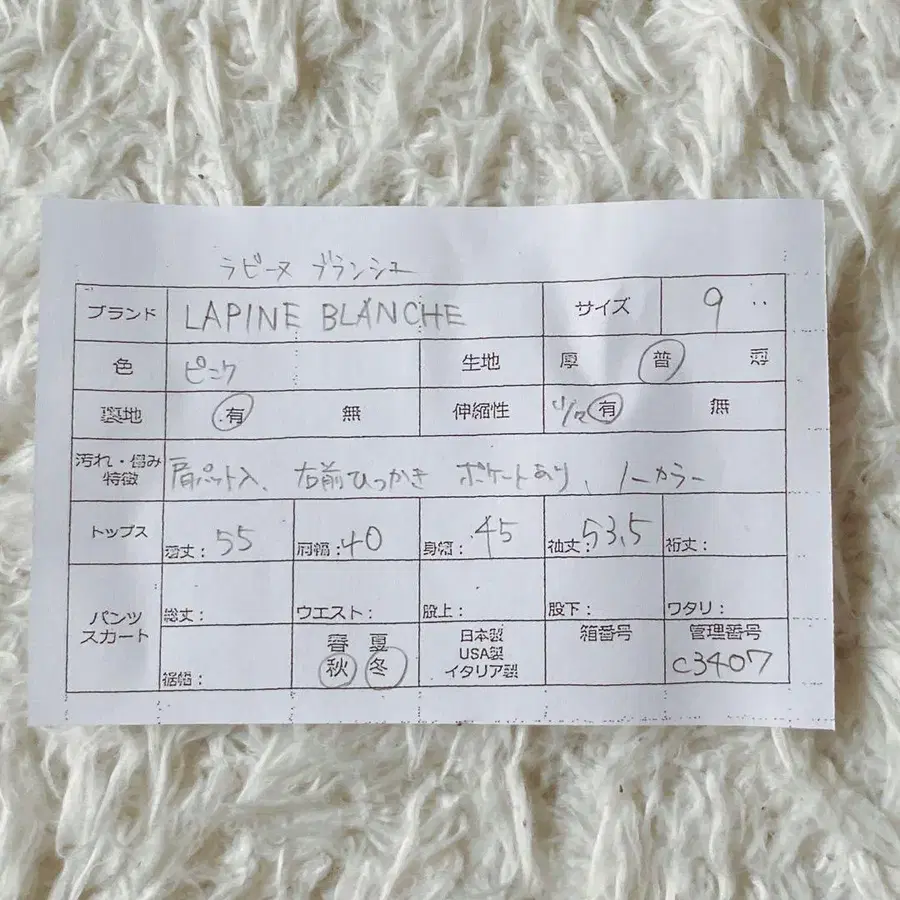 ラピーヌ ブランシュ
ブランド LAPINE BLANCHE サイズ 9
色 ピンク 生地 厚 普 薄
裏地 有 無 伸縮性 有 無
汚れ・傷み 特徴 肩パット入、右前ひっかき ポケットあり、ノーカラー
トップス 着丈: 55 肩幅: 40 身幅: 45 袖丈: 53.5 裄丈:
パンツ スカート 総丈: ウエスト: 股上: 股下: ワタリ:
裾幅: 春 夏 秋 冬 日本製 USA製 イタリア製 箱番号 管理番号 C3407